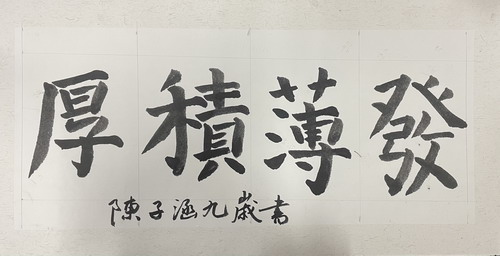 厚積薄發
陳子涵九歲書